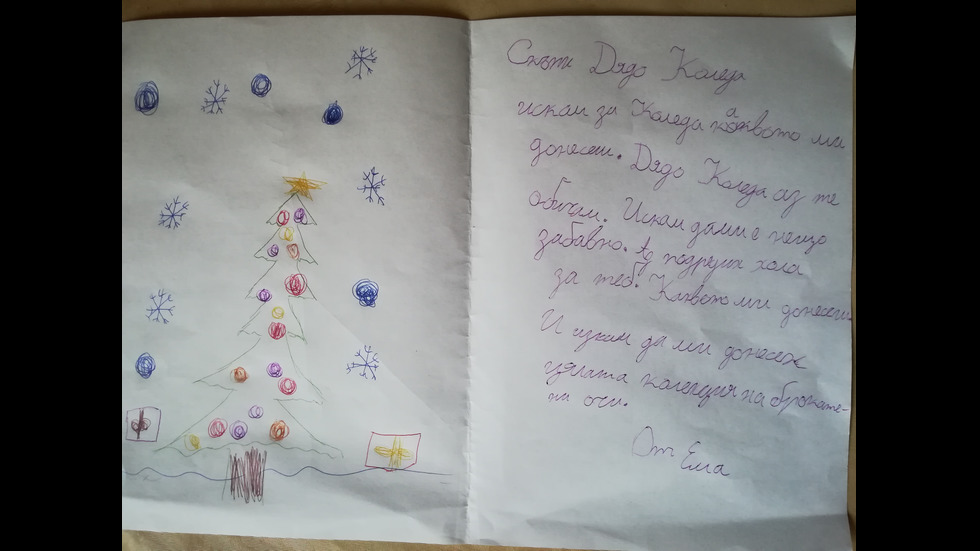 Скъпи Дядо Коледа
искам за Коледа каквото ми
донесеш. Дядо Коледа аз те
обичам. Искам да ми е нещо
забавно. Аз подредих хола
за теб. Каквото ми донесеш
И искам да ми донесеш
цялата колекция на брокате-
ни очи.
От Ема